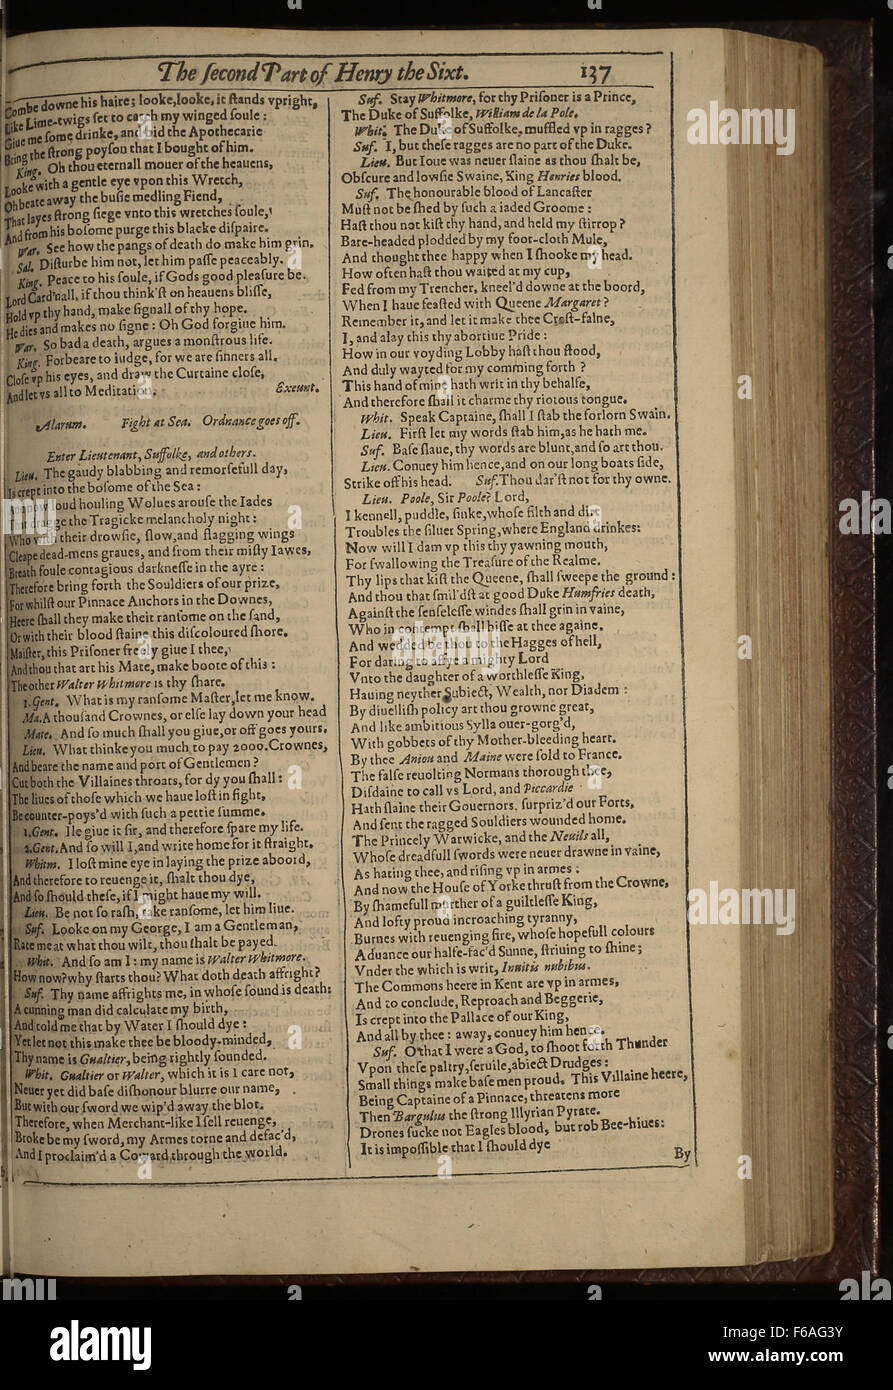 The second Part of Henry the Sixt. 137
Combe downe his haire; looke, looke, it stands vpright,
Like Lime-twigs set to catch my winged soule:
Giue me some drinke, and bid the Apothecarie
Bring the strong poyson that I bought of him.
King. Oh thou eternall mouer of the heauens,
Looke with a gentle eye vpon this Wretch,
Oh beate away the busie medling Fiend,
That layes strong siege vnto this wretches soule,
And from his bosome purge this blacke dispaire.
War. See how the pangs of death do make him grin.
Sal. Disturbe him not, let him passe peaceably.
King. Peace to his soule, if Gods good pleasure be.
Lord Card'nall, if thou think'st on heauens blisse,
Hold vp thy hand, make signall of thy hope.
He dies and makes no signe: Oh God forgiue him.
War. So bad a death, argues a monstrous life.
King. Forbeare to iudge, for we are sinners all.
Close vp his eyes, and draw the Curtaine close,
And let vs all to Meditation. Exeunt.
Alarum. Fight at Sea. Ordnance goes off.
Enter Lieutenant, Suffolke, and others.
Lieu. The gaudy blabbing and remorsefull day,
Is crept into the bosome of the Sea:
And now loud houling Wolues arouse the Iades
That dragge the Tragicke melancholy night:
Who with their drowsie, slow, and flagging wings
Cleape dead-mens graues, and from their misty Iawes,
Breath foule contagious darknesse in the ayre:
Therefore bring forth the Souldiers of our prize,
For whilst our Pinnace Anchors in the Downes,
Heere shall they make their ransome on the sand,
Or with their blood staine this discoloured shore.
Maister, this Prisoner freely giue I thee,
And thou that art his Mate, make boote of this:
The other Walter Whitmore is thy share.
1.Gent. What is my ransome Master, let me know.
Ma. A thousand Crownes, or else lay down your head
Mate. And so much shall you giue, or off goes yours.
Lieu. What thinke you much to pay 2000. Crownes,
And beare the name and port of Gentlemen?
Cut both the Villaines throats, for dy you shall:
The liues of those which we haue lost in fight,
Be counter-poys'd with such a pettie summe.
1.Gent. Ile giue it sir, and therefore spare my life.
2.Gent. And so will I, and write home for it straight.
Whitm. I lost mine eye in laying the prize aboord,
And therefore to reuenge it, shalt thou dye,
And so should these, if I might haue my will.
Lieu. Be not so rash, take ransome, let him liue.
Suf. Looke on my George, I am a Gentleman,
Rate me at what thou wilt, thou shalt be payed.
Whit. And so am I: my name is Walter Whitmore.
How now? why starts thou? What doth death affright?
Suf. Thy name affrights me, in whose sound is death:
A cunning man did calculate my birth,
And told me that by Water I should dye:
Yet let not this make thee be bloody-minded,
Thy name is Gualtier, being rightly sounded.
Whit. Gualtier or Walter, which it is I care not,
Neuer yet did base dishonour blurre our name,
But with our sword we wip'd away the blot.
Therefore, when Merchant-like I sell reuenge,
Broke be my sword, my Armes torne and defac'd,
And I proclaim'd a Coward through the world.
Suf. Stay Whitmore, for thy Prisoner is a Prince,
The Duke of Suffolke, William de la Pole.
Whit. The Duke of Suffolke, muffled vp in ragges?
Suf. I, but these ragges are no part of the Duke.
Lieu. But Ioue was neuer slaine as thou shalt be,
Obscure and lowsie Swaine, King Henries blood.
Suf. The honourable blood of Lancaster
Must not be shed by such a iaded Groome:
Hast thou not kist thy hand, and held my stirrop?
Bare-headed plodded by my foot-cloth Mule,
And thought thee happy when I shooke my head.
How often hast thou waited at my cup,
Fed from my Trencher, kneel'd downe at the boord,
When I haue feasted with Queene Margaret?
Remember it, and let it make thee Crest-falne,
I, and alay this thy abortiue Pride:
How in our voyding Lobby hast thou stood,
And duly wayted for my comming forth?
This hand of mine hath writ in thy behalfe,
And therefore shall it charme thy riotous tongue.
Whit. Speak Captaine, shall I stab the forlorn Swain.
Lieu. First let my words stab him, as he hath me.
Suf. Base slaue, thy words are blunt, and so art thou.
Lieu. Conuey him hence, and on our long boats side,
Strike off his head. Suf. Thou dar'st not for thy owne.
Lieu. Poole, Sir Poole? Lord,
I kennell, puddle, sinke, whose filth and dirt
Troubles the siluer Spring, where England drinkes:
Now will I dam vp this thy yawning mouth,
For swallowing the Treasure of the Realme.
Thy lips that kist the Queene, shall sweepe the ground:
And thou that smil'dst at good Duke Humfries death,
Against the senselesse windes shall grin in vaine,
Who in contempt shall hisse at thee againe.
And wedded be thou to the Hagges of hell,
For daring to affye a mighty Lord
Vnto the daughter of a worthlesse King,
Hauing neyther Subiect, Wealth, nor Diadem:
By diuellish policy art thou growne great,
And like ambitious Sylla ouer-gorg'd,
With gobbets of thy Mother-bleeding heart.
By thee Aniou and Maine were sold to France.
The false reuolting Normans thorough thee,
Disdaine to call vs Lord, and Piccardie
Hath slaine their Gouernors, surpriz'd our Forts,
And sent the ragged Souldiers wounded home.
The Princely Warwicke, and the Neuils all,
Whose dreadfull swords were neuer drawne in vaine,
As hating thee, and rising vp in armes:
And now the House of Yorke thrust from the Crowne,
By shamefull murther of a guiltlesse King,
And lofty proud incroaching tyranny,
Burnes with reuenging fire, whose hopefull colours
Aduance our halfe-fac'd Sunne, striuing to shine;
Vnder the which is writ, Inuitis nubibus.
The Commons heere in Kent are vp in armes,
And to conclude, Reproach and Beggerie,
Is crept into the Pallace of our King,
And all by thee: away, conuey him hence.
Suf. O that I were a God, to shoot forth Thunder
Vpon these paltry, seruile, abiect Drudges:
Small things make base men proud. This Villaine heere,
Being Captaine of a Pinnace, threatens more
Then Bargulus the strong Illyrian Pyrate.
Drones sucke not Eagles blood, but rob Bee-hiues:
It is impossible that I should dye
By
alamy stock photo
F6AG3Y
www.alamy.com